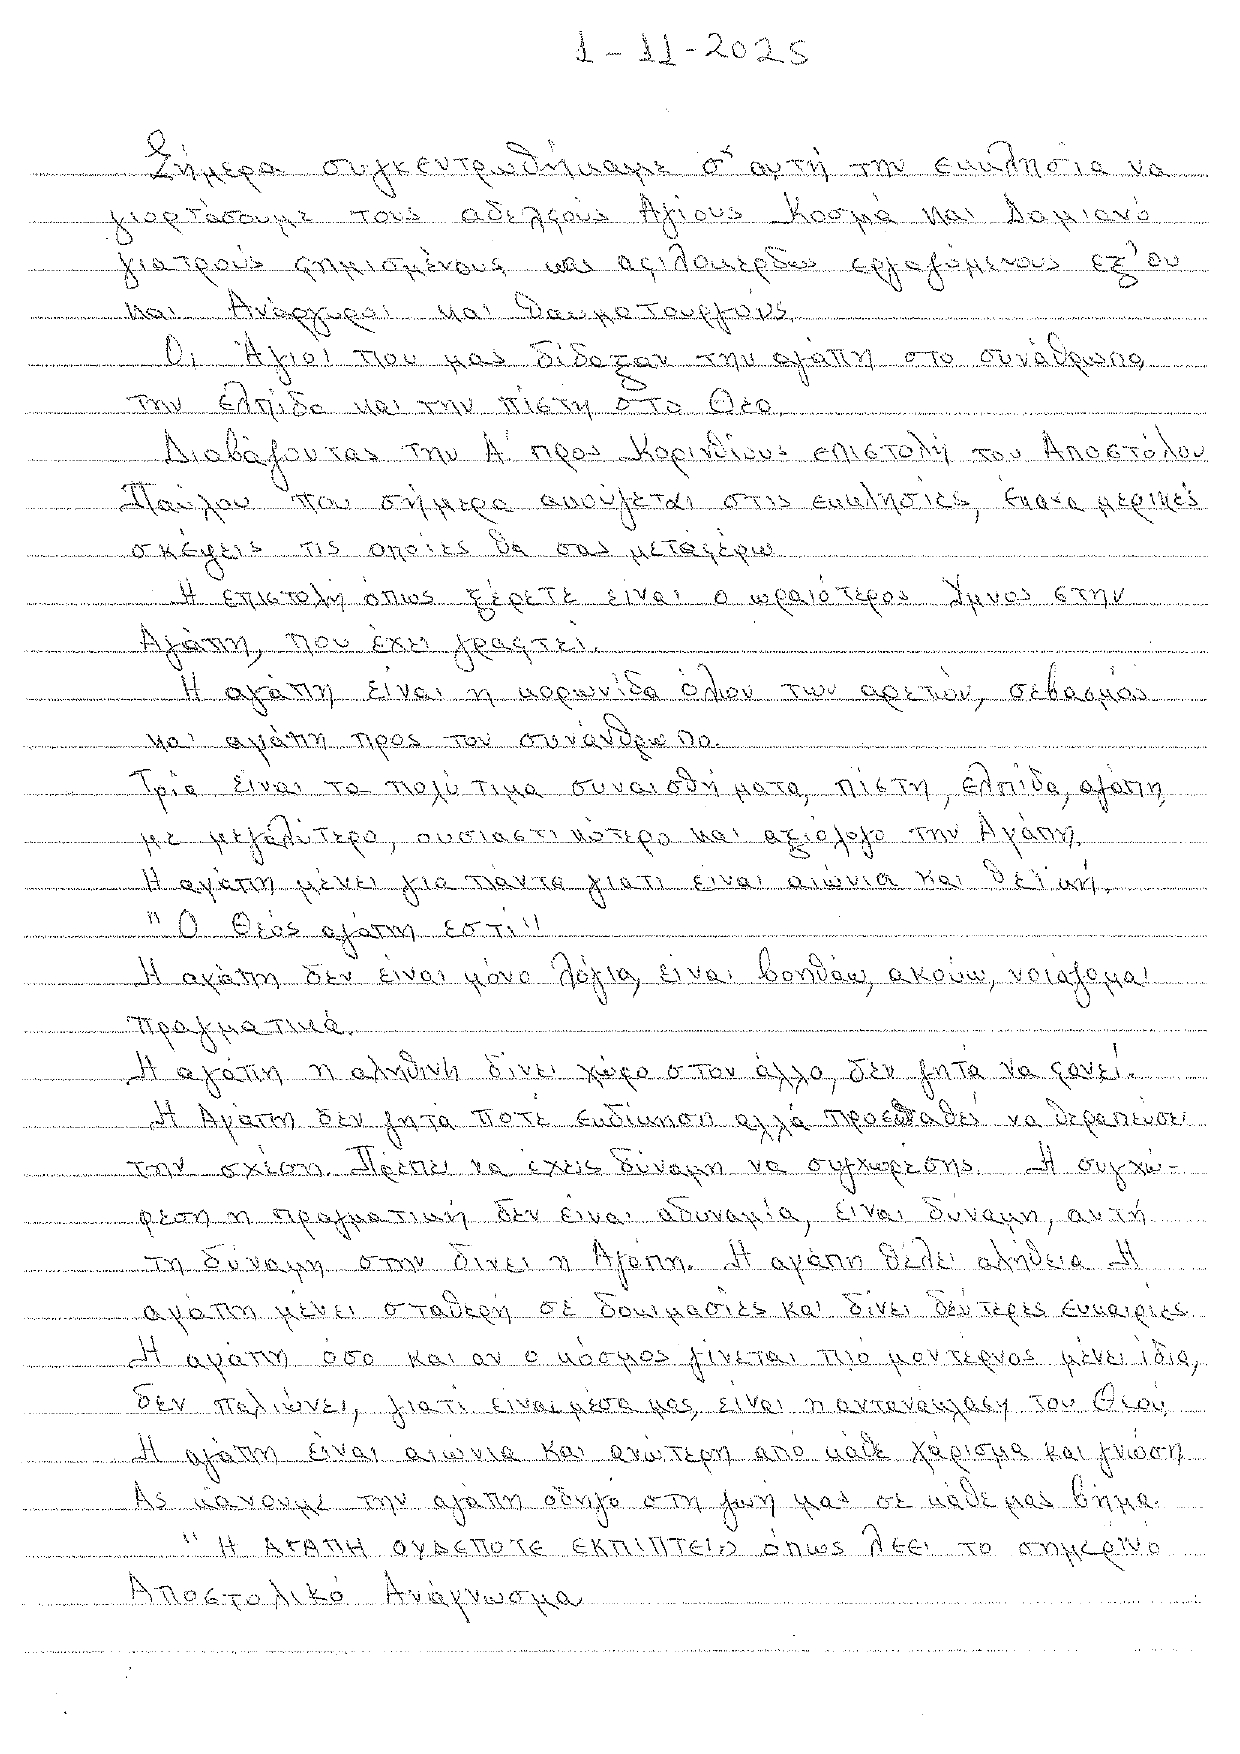 1-11-2025
Σήμερα συγκεντρωθήκαμε σ' αυτή την εκκλησία να
γιορτάσουμε τους αδελφούς Αγίους Κοσμά και Δαμιανό
γιατρούς φημισμένους και αφιλοκερδώς εργαζόμενους εξ' ου
και Ανάργυροι και θαυματουργούς.
Οι Άγιοι που μας δίδαξαν την αγάπη στο συνάθρωπο,
την ελπίδα και την πίστη στο Θεο.
Διαβάζοντας την Α' προς Κορινθίους επιστολή του Αποστόλου
Παύλου που σήμερα ακούγεται στις εκκλησίες, έκανα μερικές
σκέψεις τις οποίες θα σας μεταφέρω
Η επιστολή όπως ξέρετε είναι ο ωραιότερος Ύμνος στην
Αγάπη, που έχει γραφτεί.
Η αγάπη είναι η κορωνίδα όλων των αρετών, σεβασμός
και αγάπη προς τον συνάνθρωπο.
Τρία είναι τα πολύτιμα συναισθήματα, πίστη, ελπίδα, αγάπη,
με μεγαλύτερο, ουσιαστικότερο και αξιόλογο την Αγάπη.
Η αγάπη μένει για πάντα γιατί είναι αιώνια και θεϊκή.
"Ο Θεός αγάπη εστί"
Η αγάπη δεν είναι μόνο λόγια, είναι βοηθάω, ακούω, νοιάζομαι
πραγματικά.
Η αγάπη η αληθινή δίνει χώρο στον άλλο, δεν ζητά να φανεί.
Η Αγάπη δεν ζητά ποτέ εκδίκηση αλλά προσπαθεί να θεραπεύσει
την σχέση. Πρέπει να έχεις δύναμη να συγχωρέσης. Η συγχώ-
ρεση η πραγματική δεν είναι αδυναμία, είναι δύναμη, αυτή
τη δύναμη στην δίνει η Αγάπη. Η αγάπη θέλει αλήθεια Η
αγάπη μένει σταθερή σε δοκιμασίες και δίνει δεύτερες ευκαιρίες.
Η αγάπη όσο και αν ο κόσμος γίνεται πιό μοντέρνος μένει ίδια,
δεν παλιώνει, γιατί είναι μέσα μας, είναι η αντανάκλαση του Θεού.
Η αγάπη είναι αιώνια και ανώτερη από κάθε χάρισμα και γνώση
Ας κάνουμε την αγάπη οδηγό στη ζωή μας σε κάθε μας βήμα.
"Η ΑΓΑΠΗ ΟΥΔΕΠΟΤΕ ΕΚΠΙΠΤΕΙ" όπως λέει το σημερινό
Αποστολικό Ανάγνωσμα